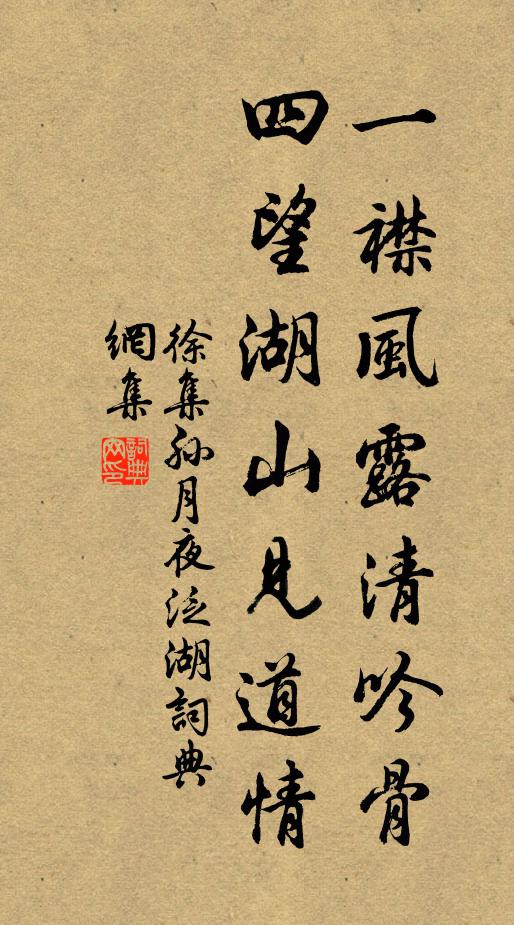 一襟風露清吟骨
四望湖山見道情
徐集孙月夜泛湖詞典
網集
詞典网印